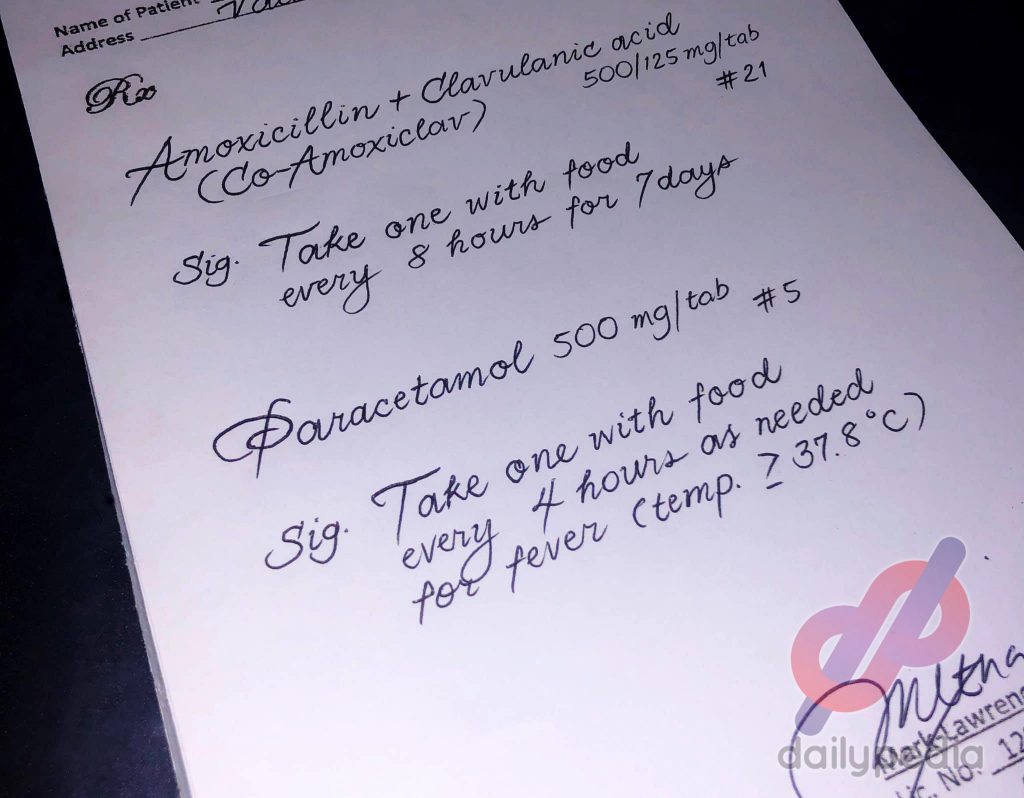 Name of Patient
Address
Rx
Amoxicillin + Clavulanic acid
(Co-Amoxiclav) 500/125 mg/tab
#21
Sig. Take one with food
every 8 hours for 7 days
Paracetamol 500 mg/tab #5
Sig. Take one with food
every 4 hours as needed
for fever (temp. ≥ 37.8°C)
Mark Lawrenc
Lic. No. 12
dailypedia